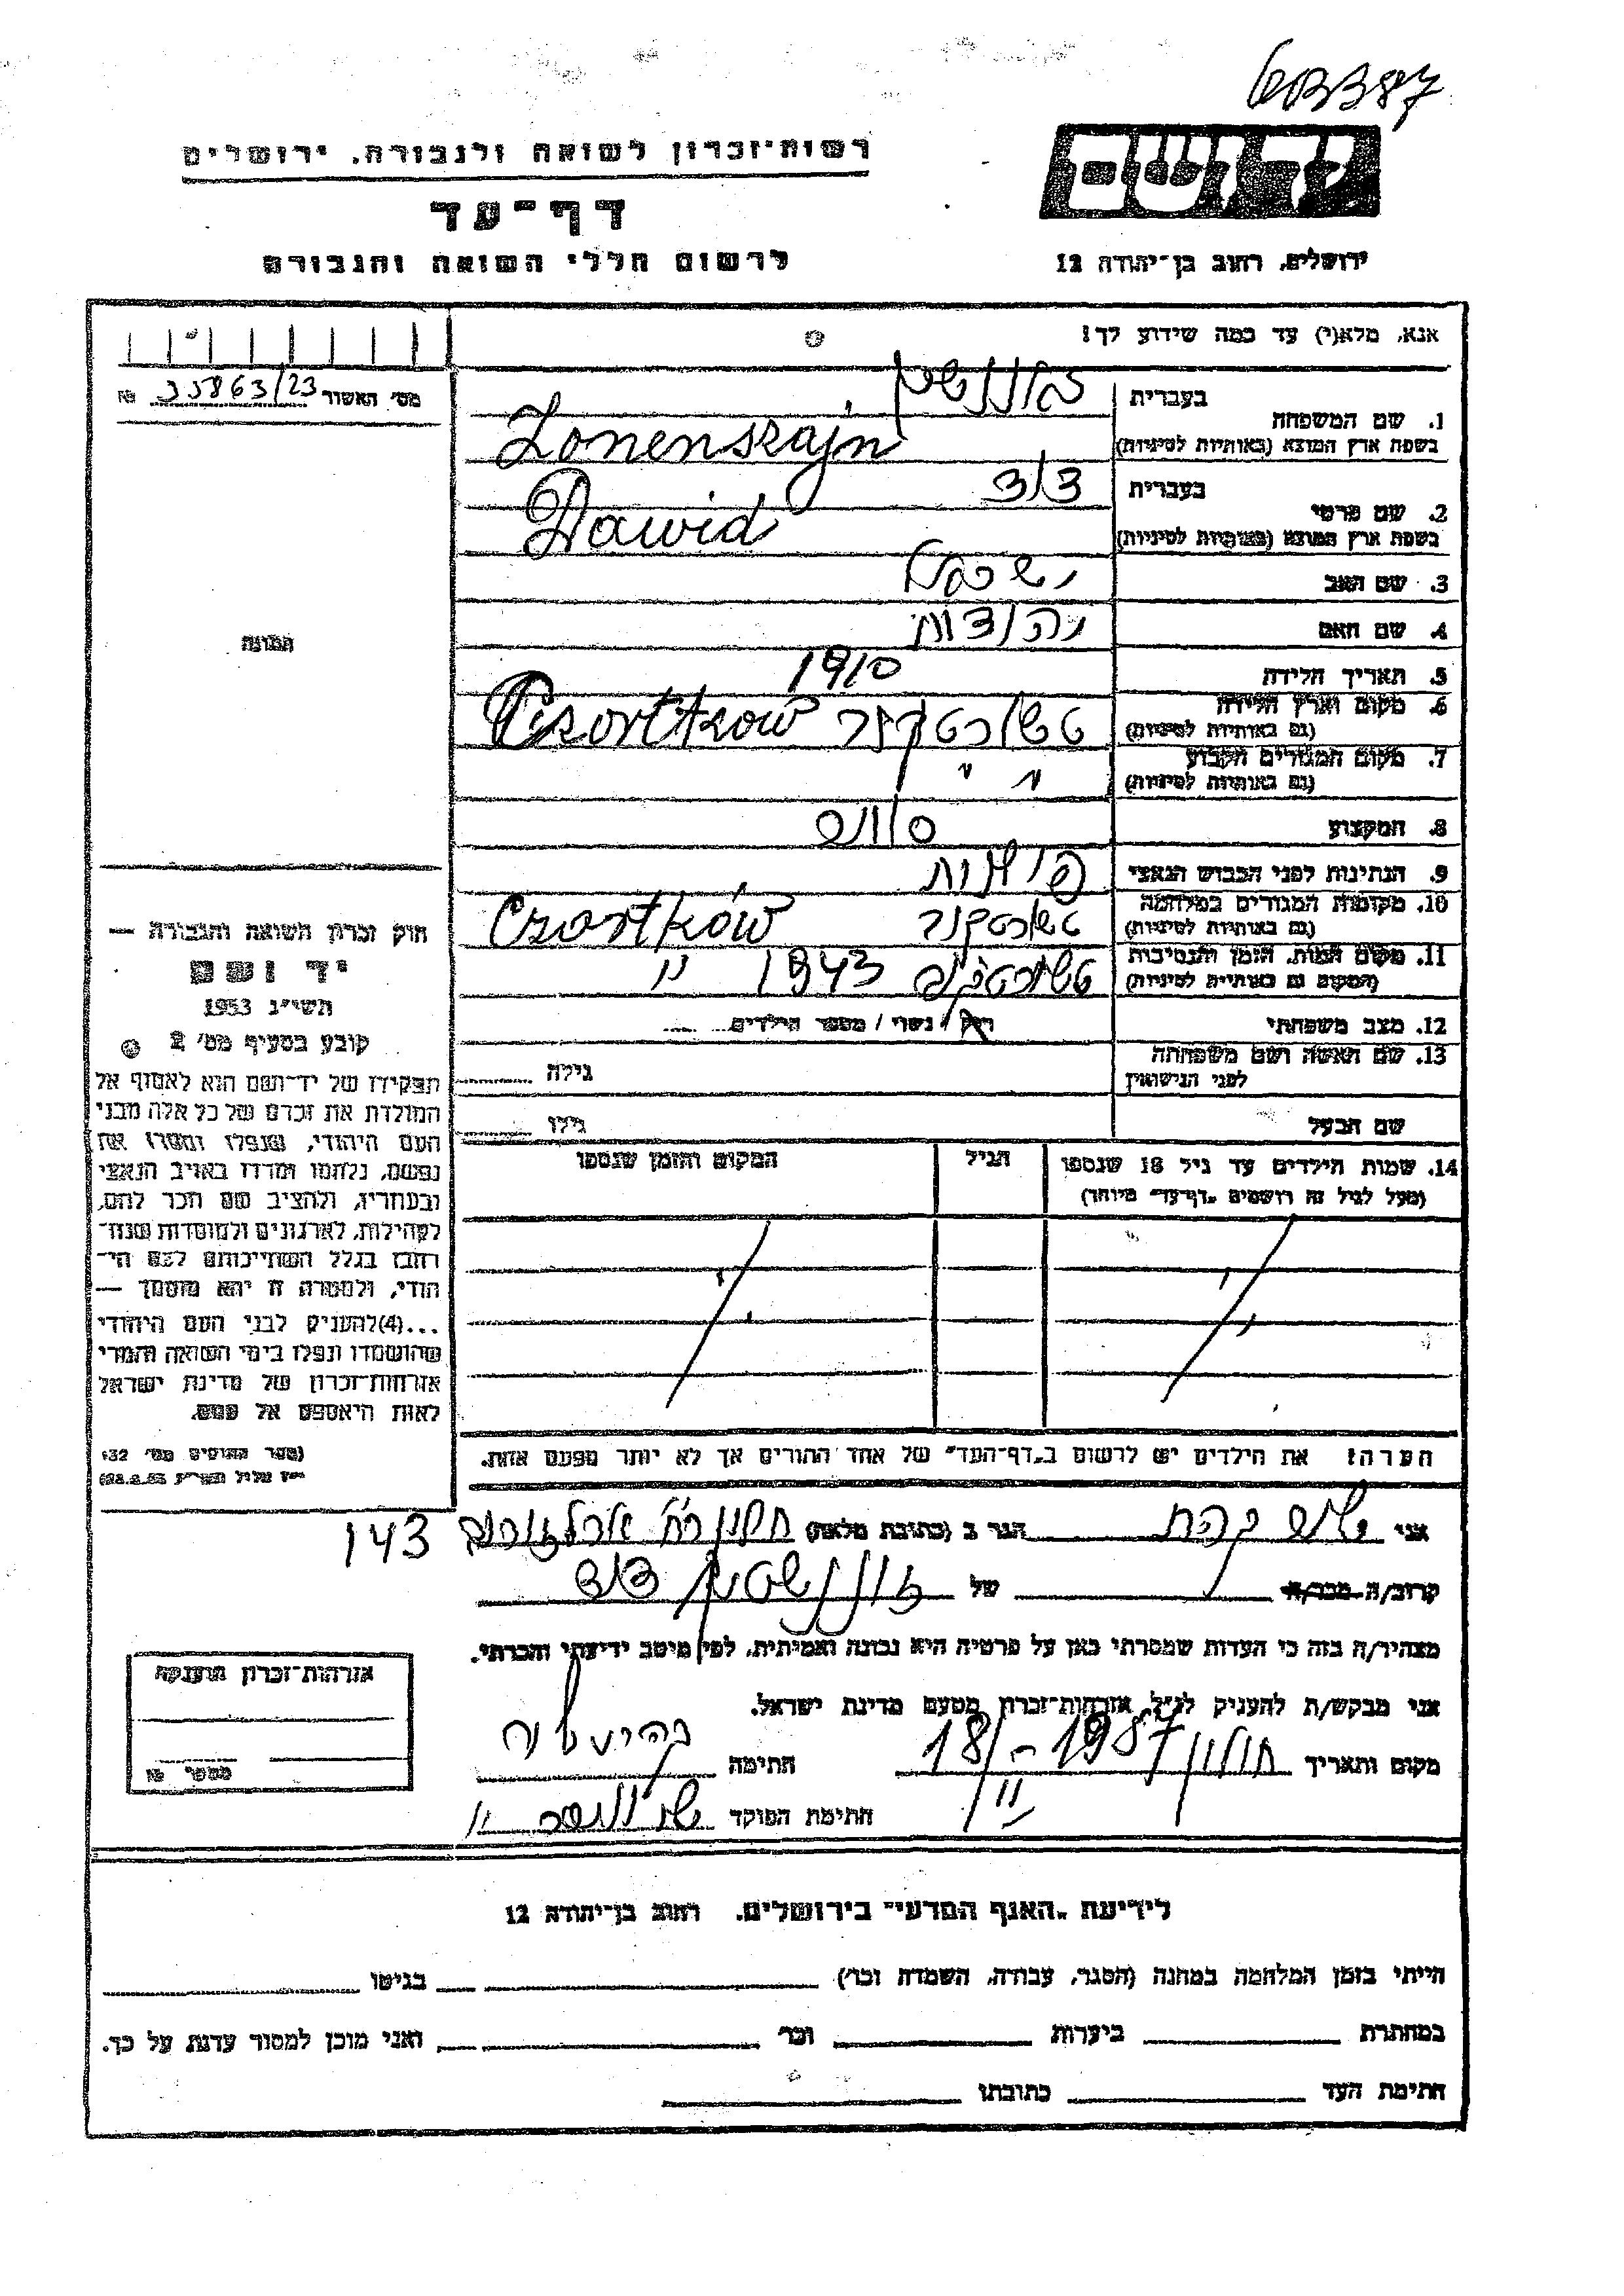 603387
רשות־זכרון לשואה ולגבורה, ירושלים
יד ושם
דף־עד
לרשום חללי השואה והגבורה
ירושלים, רחוב בן־יהודה 12
אנא, מלא(י) עד כמה שידוע לך!
מס׳ האשור 35863/23 №
1. שם המשפחה
בעברית זוננשיין
בשפת ארץ המוצא (באותיות לטיניות) Zonenszajn
2. שם פרטי
בעברית דוד
בשפת ארץ המוצא (באותיות לטיניות) Dawid
3. שם האב ישראל
4. שם האם יהודית
5. תאריך הלידה 1910
6. מקום וארץ הלידה
(גם באותיות לטיניות) טשורטקוב Czortków
7. מקום המגורים הקבוע
(גם באותיות לטיניות) " "
8. המקצוע
9. הנתינות לפני הכבוש הנאצי
10. מקומות המגורים במלחמה
(גם באותיות לטיניות) טשורטקוב Czortków
11. מקום המות, הזמן והנסיבות
(המקום גם באותיות לטיניות) טשורטקוב 1943
12. מצב משפחתי רווק / נשוי / מספר הילדים
13. שם האשה ושם משפחתה
לפני הנישואין גילה
שם הבעל גילו
14. שמות הילדים עד גיל 18 שנספו
(מעל לגיל זה רושמים „דף־עד״ מיוחד)
הגיל
המקום והזמן שנספו
הערה! את הילדים יש לרשום ב„דף־העד״ של אחד ההורים אך לא יותר מפעם אחת.
התמונה
חוק זכרון השואה והגבורה —
יד ושם
תשי״ג 1953
קובע בסעיף מס׳ 2
תפקידו של יד־ושם הוא לאסוף אל
המולדת את זכרם של כל אלה מבני
העם היהודי, שנפלו ומסרו את
נפשם, נלחמו ומרדו באויב הנאצי
ובעוזריו, ולהציב שם וזכר להם,
לקהילות, לארגונים ולמוסדות שנח־
רבו בגלל השתייכותם לעם הי־
הודי, ולמטרה זו יהא מוסמך —
...(4)להעניק לבני העם היהודי
שהושמדו ונפלו בימי השואה והמרי
אזרחות־זכרון של מדינת ישראל
לאות היאספם אל עמם.
(ספר החוקים מס׳ 132
אני הגר ב (כתובת מלאה) חולון 143
קרוב/ה מכר/ה של זוננשיין דוד
מצהיר/ה בזה כי העדות שמסרתי כאן על פרטיה היא נכונה ואמיתית, לפי מיטב ידיעתי והכרתי.
אני מבקש/ת להעניק לנ״ל, אזרחות־זכרון מטעם מדינת ישראל.
מקום ותאריך חולון 18/II - 1987 חתימה
חתימת הפוקד
אזרחות־זכרון מוענקה
מספר №
לידיעת „האגף המדעי״ בירושלים, רחוב בן־יהודה 12
הייתי בזמן המלחמה במחנה (הסגר, עבודה, השמדה וכו׳) בגיטו
במחתרת ביערות וכו׳ ואני מוכן למסור עדות על כך.
חתימת העד כתובתו